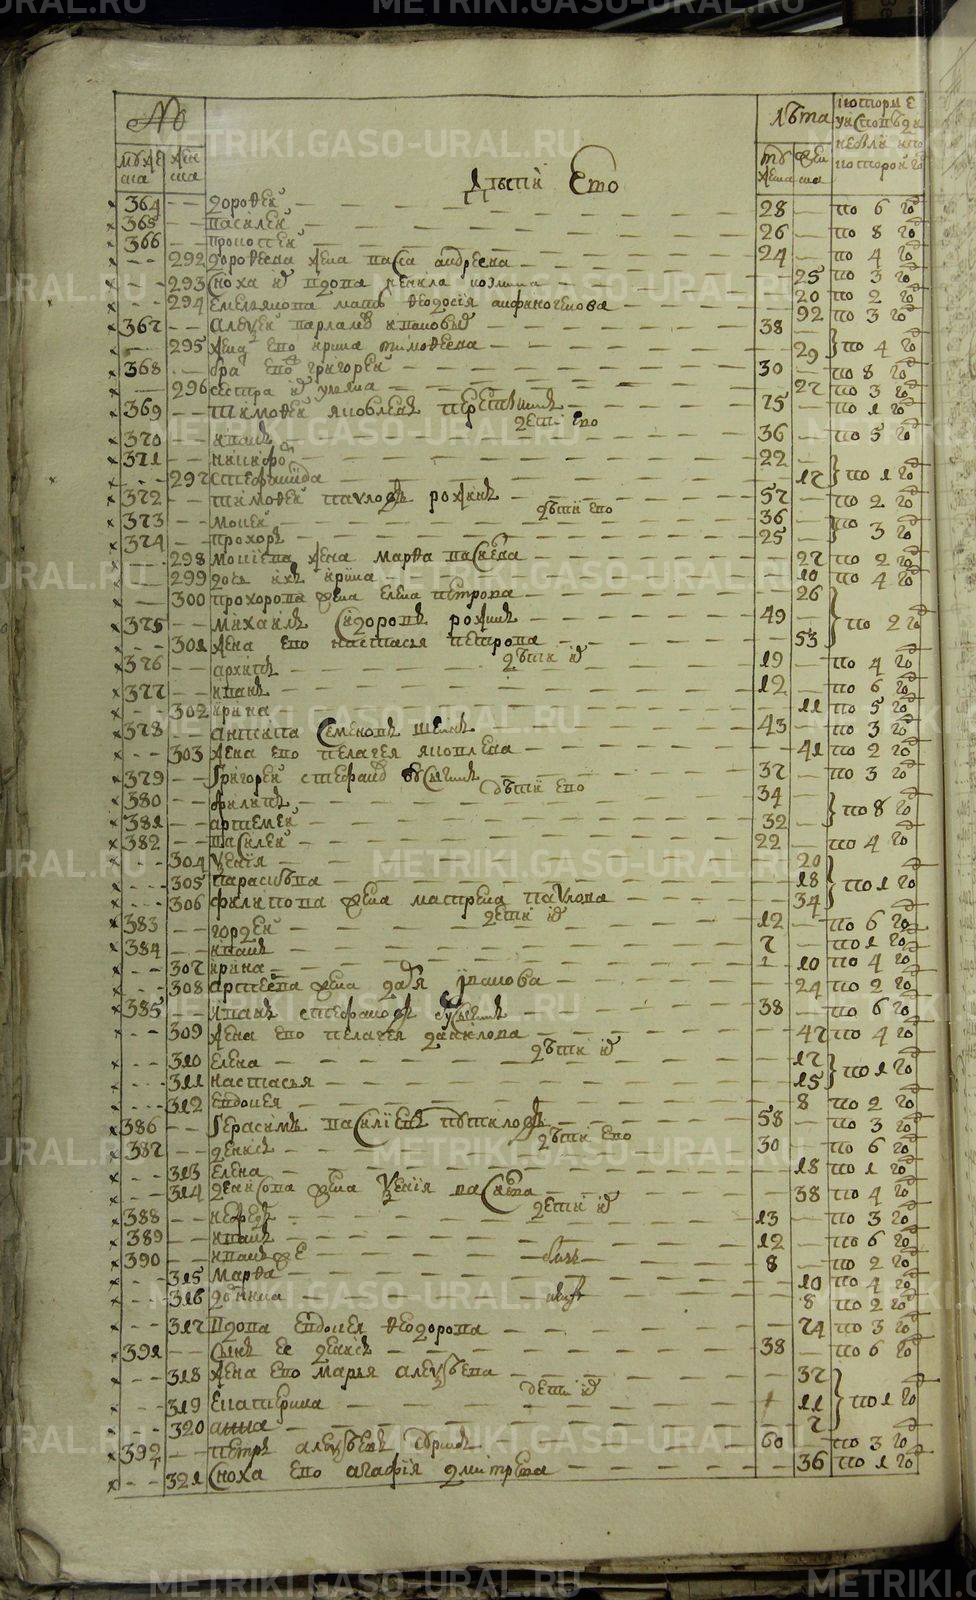 METRIKI.GASO-URAL.RU
№ лѣта которые
мужеска женска мужеска женска
дѣти Его
364 дорофеи 28 по 6 го
365 василеи 26 по 8 го
366 прокопеи 24 по 4 го
292 дорофеева жена васса андреева 25 по 3 го
293 сноха их вдова ненила козмина 20 по 2 го
294 Емельянова мать феодосия анфиногенова 92 по 3 го
367 алеѯеи варламов 38
295 жена его ирина тимофеева 29 по 4 го
368 бра его григореи 30 по 8 го
296 сестра их улияна 27 по 3 го
369 тимофеи яковлевъ 75 по 1 го
дети его
370 иванъ 36 по 5 го
371 никифо 22
297 стефанида 17 по 1 го
372 тимофеи павловъ рожинъ 57 по 2 го
дѣти его
373 мокеи 36
374 прохоръ 25 по 3 го
298 мокиева жена марфа васильева 27 по 2 го
299 дочь ихъ ирина 10 по 4 го
300 прохорова жена елена петрова 26
375 михаилъ сидоровъ рожинъ 49 по 2 го
301 жена его настасья петрова 53
дѣти их
376 архипъ 19 по 4 го
377 иванъ 12 по 6 го
302 ирина 11 по 5 го
378 антипа семеновъ 43 по 3 го
303 жена его пелагея яковлева 41 по 2 го
379 григореи стефанов 37 по 3 го
дѣти его
380 филипъ 34
381 артемеи 32 по 8 го
382 василеи 22 по 4 го
304 ѯения 20
305 парасковья 18 по 1 го
306 филипова жена матрена павлова 34
дети их
383 гордеи 12 по 6 го
384 иванъ 7 по 1 го
307 ирина 10 по 4 го
308 артемьева жена дарья иванова 24 по 2 го
385 иванъ стефановъ 38 по 6 го
309 жена его пелагея данилова 47 по 4 го
дѣти их
310 елена 17
311 настасья 15 по 1 го
312 евдокея 8 по 2 го
386 герасимъ васильевъ 58 по 3 го
дѣти его
387 денисъ 30 по 6 го
313 елена 18 по 1 го
314 денисова жена ѯения 38 по 4 го
дети их
388 нефедъ 13 по 3 го
389 иванъ 12 по 6 го
390 иванъ же 8 по 2 го
315 марфа 10 по 4 го
316 домна 8 по 2 го
317 вдова евдокея феодорова 74 по 3 го
391 сынъ ее денисъ 38 по 6 го
318 жена его марья алеѯѣева 37
дети их
319 екатерина 11 по 1 го
320 анна 7
392 петръ алеѯѣевъ 60 по 3 го
321 сноха его агафия дмитрева 36 по 1 го